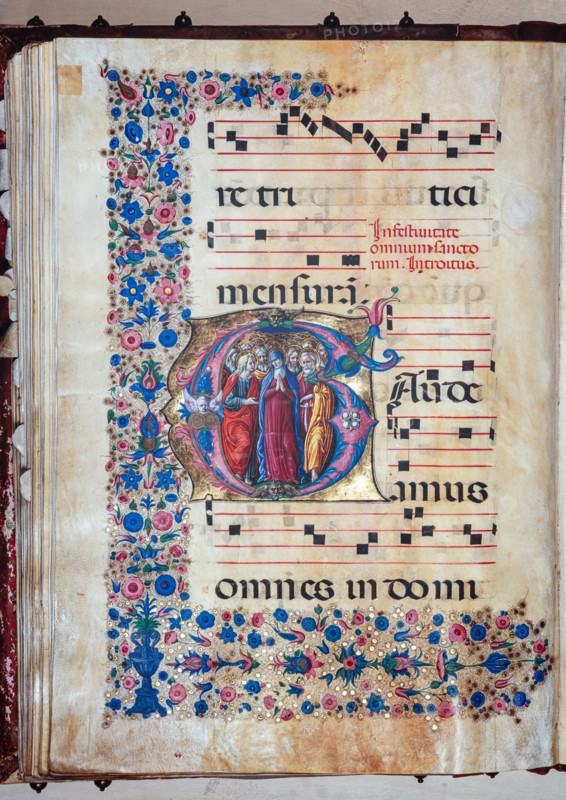 re tri tici
Infestiuitate
omnium sancto
rum. Introitus.
G
Aude
amus
omnes in domi